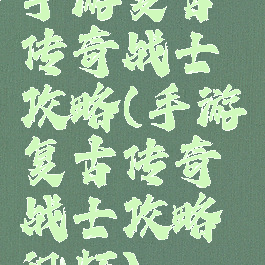 手游复古
传奇战士
攻略(手游
复古传奇
战士攻略
视频)